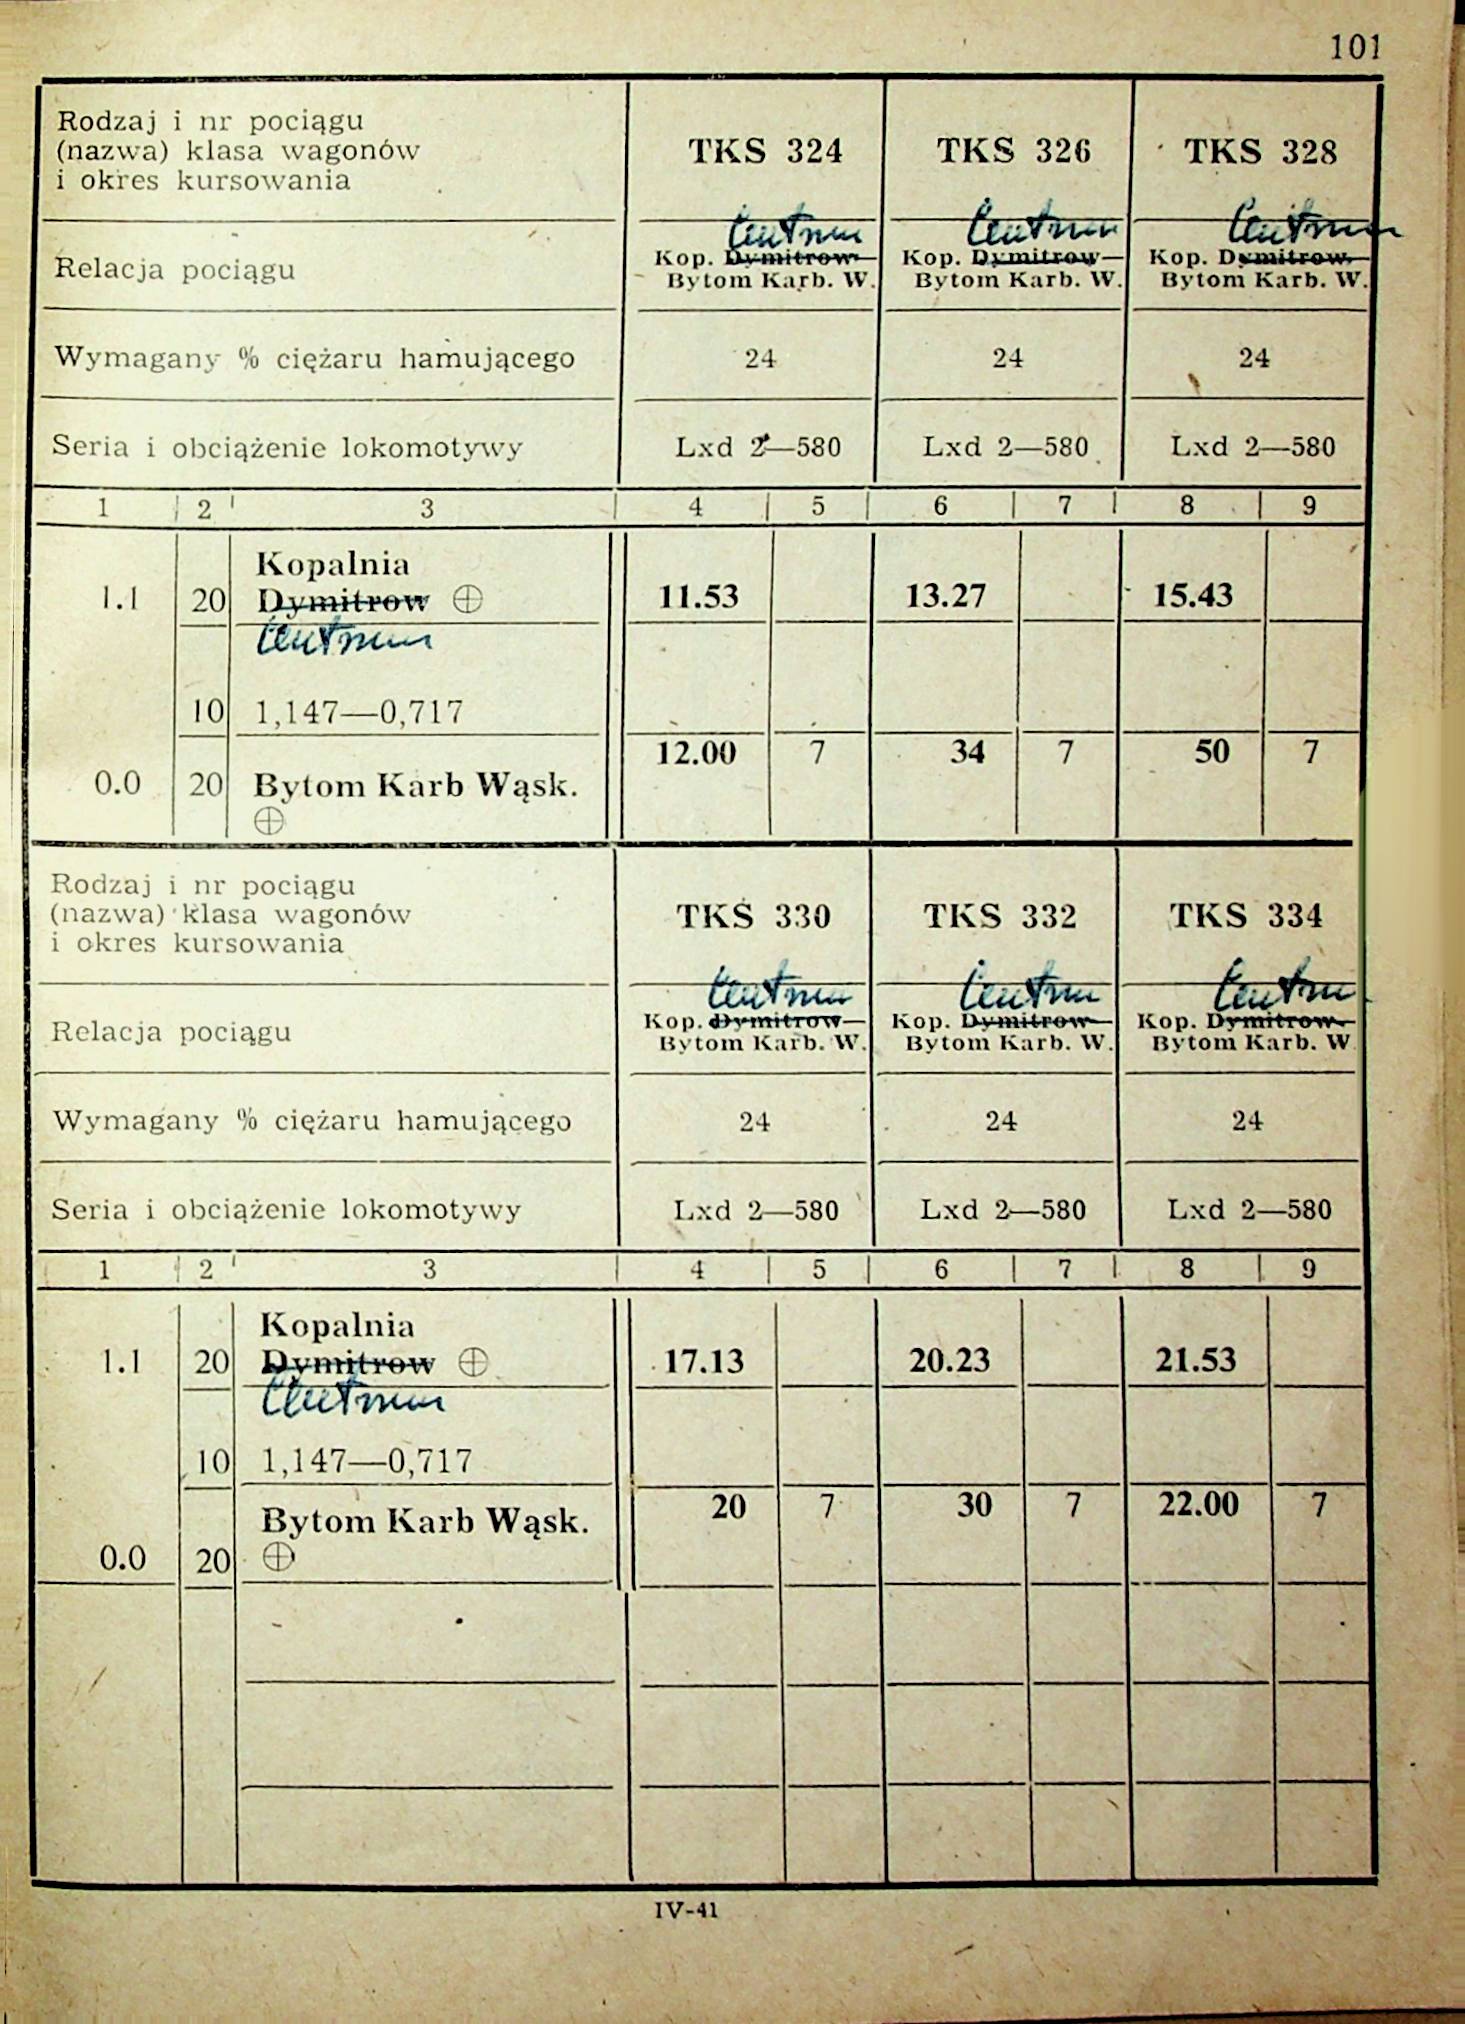 101
Rodzaj i nr pociągu
(nazwa) klasa wagonów
i okres kursowania
TKS 324 TKS 326 TKS 328
Centrum Centrum Centrum
Relacja pociągu
Kop. Dymitrow— Kop. Dymitrow— Kop. Dymitrow—
Bytom Karb. W. Bytom Karb. W. Bytom Karb. W.
Wymagany % ciężaru hamującego 24 24 24
Seria i obciążenie lokomotywy Lxd 2—580 Lxd 2—580 Lxd 2—580
1 2 3 4 5 6 7 8 9
Kopalnia
1.1 20 Dymitrow ⊕ 11.53 13.27 15.43
Centrum
10 1,147—0,717
12.00 7 34 7 50 7
0.0 20 Bytom Karb Wąsk.
⊕
Rodzaj i nr pociągu
(nazwa) klasa wagonów
i okres kursowania
TKS 330 TKS 332 TKS 334
Centrum Centrum Centrum
Relacja pociągu
Kop. Dymitrow— Kop. Dymitrow— Kop. Dymitrow—
Bytom Karb. W. Bytom Karb. W. Bytom Karb. W
Wymagany % ciężaru hamującego 24 24 24
Seria i obciążenie lokomotywy Lxd 2—580 Lxd 2—580 Lxd 2—580
1 2 3 4 5 6 7 8 9
Kopalnia
1.1 20 Dymitrow ⊕ 17.13 20.23 21.53
Centrum
10 1,147—0,717
20 7 30 7 22.00 7
Bytom Karb Wąsk.
0.0 20 ⊕
IV-41